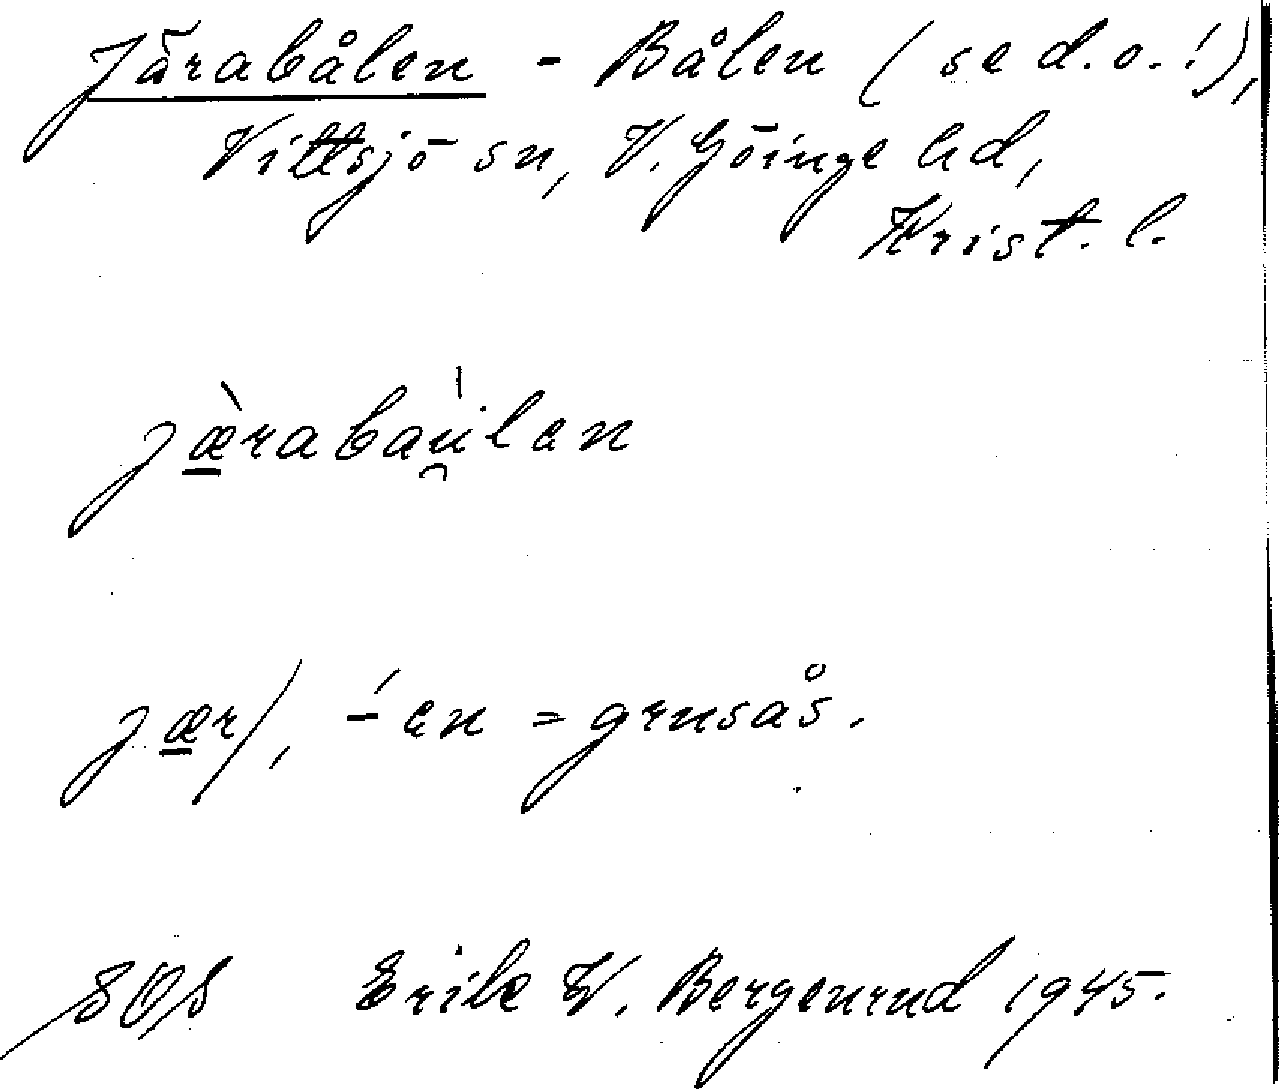 Järabålen - Bålen (se d.o.!),
Vittsjö sn, V. Göinge hd,
Krist. l.
jæ̀rabau̯̍len
jær), -́en = grusås.
Erik W. Bergenrud 1945.